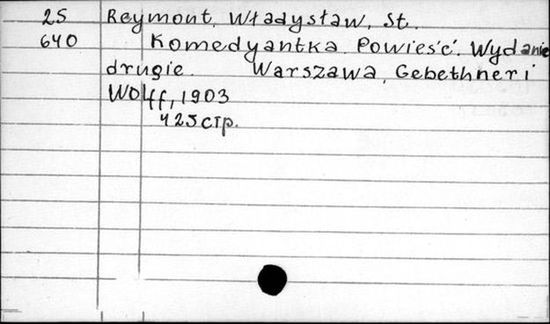 25 Reymont, Władysław, St.
640 Komedyantka. Powieść. Wydanie
drugie. Warszawa, Gebethner i
Wolff, 1903
425 стр.